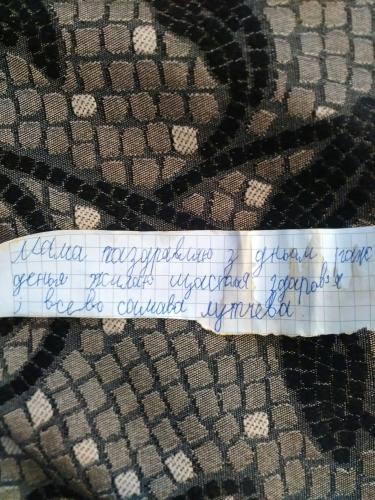 Мама паздравляю з дньом раж
денья жилаю щастья здаровья
і всево самава лутчева.